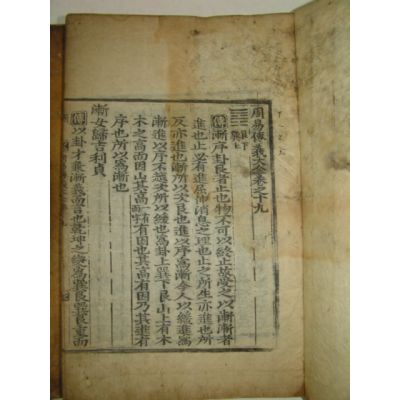 周易傳義大全卷之十九
䷴艮下巽上
傳漸序卦艮者止也物不可以終止故受之以漸漸者
進也止必有進屈伸消息之理也止之所生亦進也所
反亦進也漸所以次艮也進以序爲漸今人以緩進爲
漸進以序不越次所以緩也爲卦上巽下艮山上有木
木之高而因山其高有因也其高有因乃其進有
序也所以爲漸也
漸女歸吉利貞
傳以卦才兼漸義而言也乾坤之變爲巽艮巽艮重而